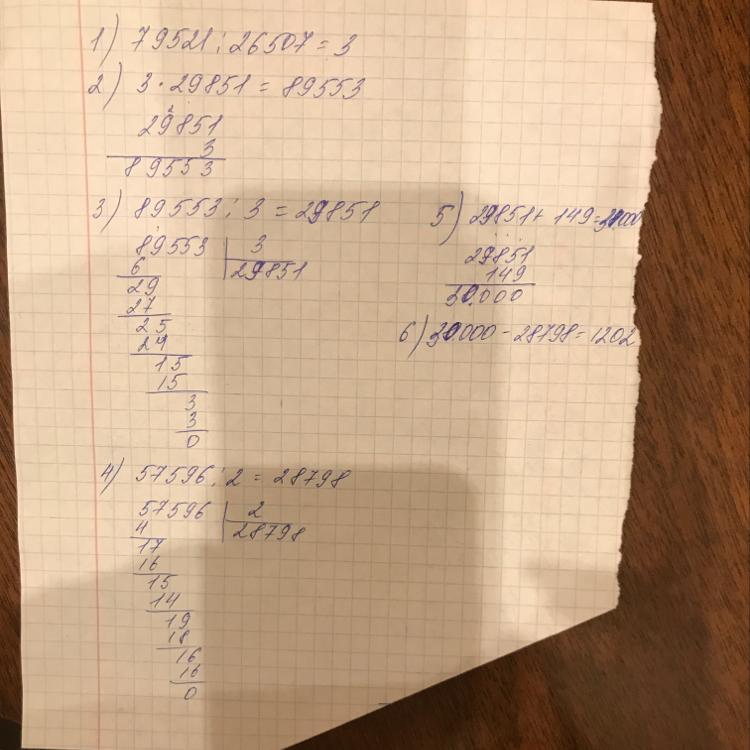 1) 79521 : 26507 = 3
2) 3 · 29851 = 89553
2
29851
3
89553
3) 89553 : 3 = 29851
89553 3
6 29851
29
27
25
24
15
15
3
3
0
4) 57596 : 2 = 28798
57596 2
4 28798
17
16
15
14
19
18
16
16
0
5) 29851 + 149 = 30000
29851
149
30.000
6) 30.000 - 28798 = 1202